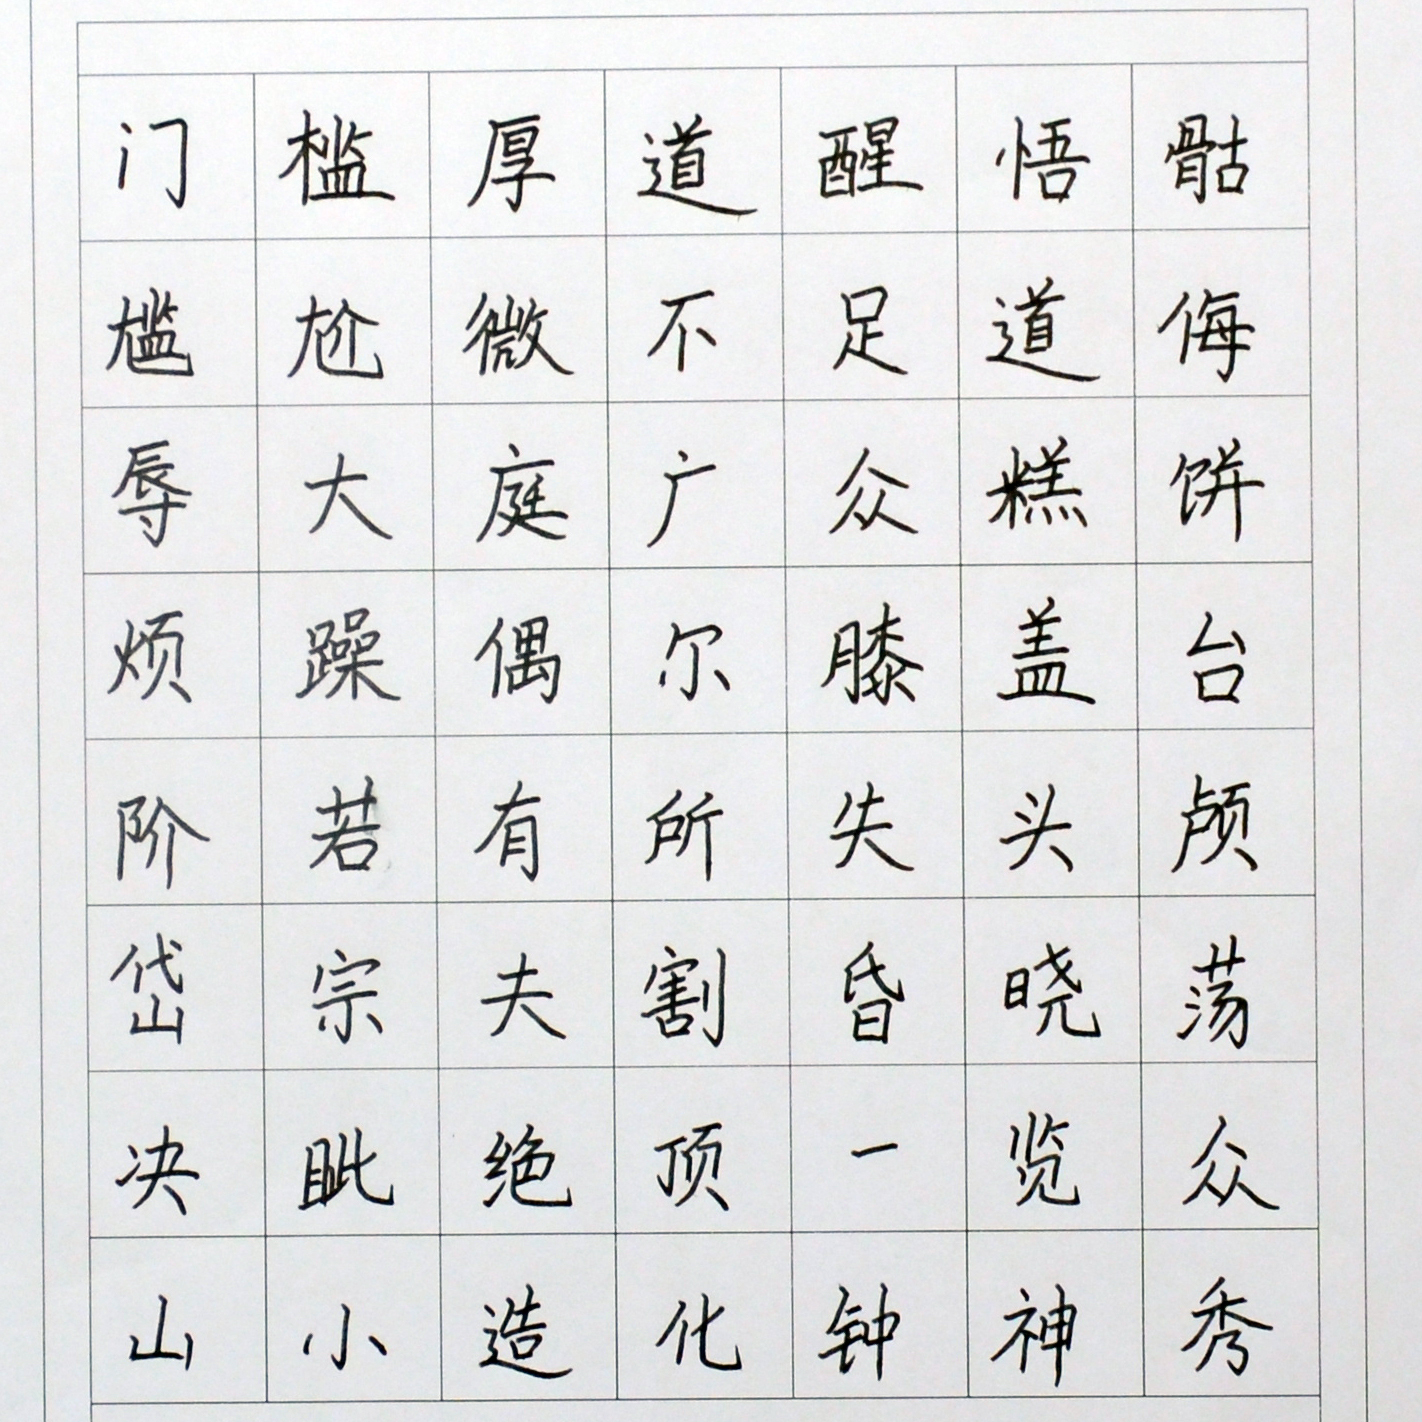 门槛厚道醒悟骷
尴尬微不足道侮
辱大庭广众糕饼
烦躁偶尔膝盖台
阶若有所失头颅
岱宗夫割昏晓荡
决眦绝顶一览众
山小造化钟神秀